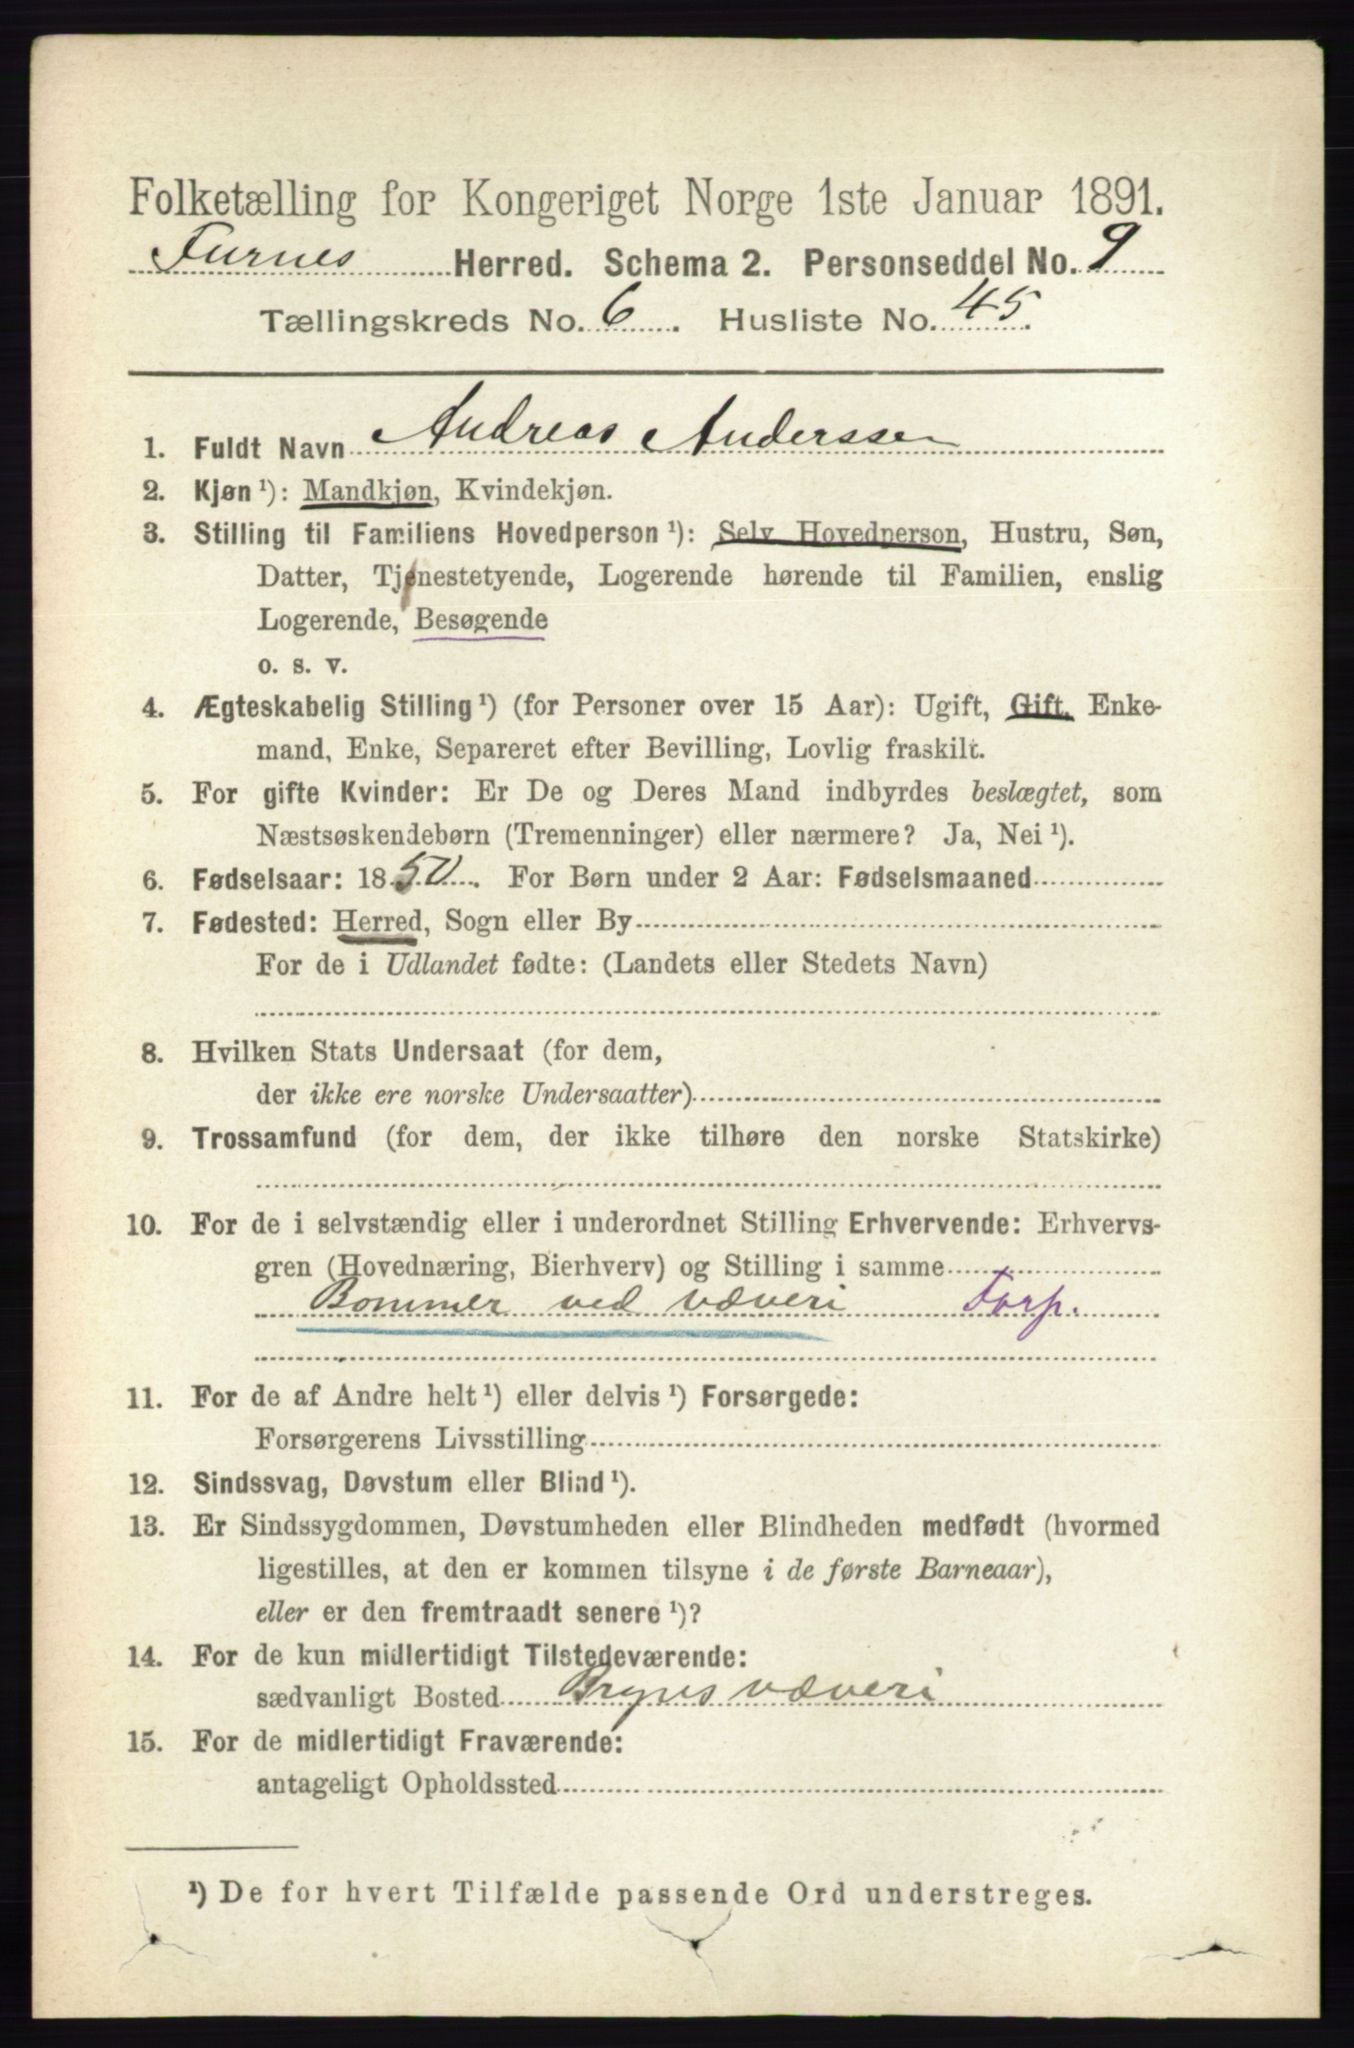 Folketælling for Kongeriget Norge 1ste Januar 1891.
Furnes Herred. Schema 2. Personseddel No. 9
Tællingskreds No. 6. Husliste No. 45.
1. Fuldt Navn Andreas Anderssen
2. Kjøn ¹): Mandkjøn, Kvindekjøn.
3. Stilling til Familiens Hovedperson ¹): Selv Hovedperson, Hustru, Søn,
Datter, Tjenestetyende, Logerende hørende til Familien, enslig
Logerende, Besøgende
o. s. v.
4. Ægteskabelig Stilling ¹) (for Personer over 15 Aar): Ugift, Gift, Enke-
mand, Enke, Separeret efter Bevilling, Lovlig fraskilt.
5. For gifte Kvinder: Er De og Deres Mand indbyrdes beslægtet, som
Næstsøskendebørn (Tremenninger) eller nærmere? Ja, Nei ¹).
6. Fødselsaar: 1850. For Børn under 2 Aar: Fødselsmaaned
7. Fødested: Herred, Sogn eller By
For de i Udlandet fødte: (Landets eller Stedets Navn)
8. Hvilken Stats Undersaat (for dem,
der ikke ere norske Undersaatter)
9. Trossamfund (for dem, der ikke tilhøre den norske Statskirke)
10. For de i selvstændig eller i underordnet Stilling Erhvervende: Erhvervs-
gren (Hovednæring, Bierhverv) og Stilling i samme
Bommer ved væveri Forp.
11. For de af Andre helt ¹) eller delvis ¹) Forsørgede:
Forsørgerens Livsstilling
12. Sindssvag, Døvstum eller Blind ¹).
13. Er Sindssygdommen, Døvstumheden eller Blindheden medfødt (hvormed
ligestilles, at den er kommen tilsyne i de første Barneaar),
eller er den fremtraadt senere ¹)?
14. For de kun midlertidigt Tilstedeværende:
sædvanligt Bosted Brynsvæveri
15. For de midlertidigt Fraværende:
antageligt Opholdssted
¹) De for hvert Tilfælde passende Ord understreges.